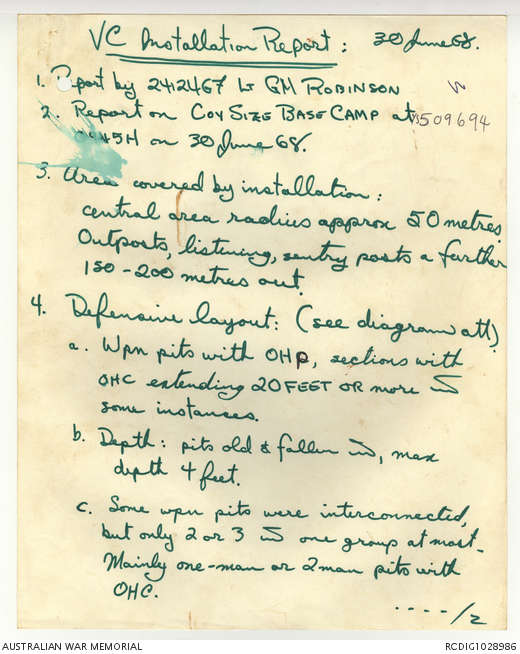 VC Installation Report: 30 June 68.
1. Report by 2412467 Lt GM ROBINSON
2. Report on COY SIZE BASE CAMP at YS509694
0945H on 30 June 68.
3. Area covered by installation:
central area radius approx 50 metres.
Outposts, listening, sentry posts a further
150-200 metres out.
4. Defensive layout: (see diagram att)
a. Wpn pits with OHP, sections with
OHC extending 20 FEET OR more in
some instances.
b. Depth: pits old & fallen in, max
depth 4 feet.
c. Some wpn pits were interconnected,
but only 2 or 3 in one group at most.
Mainly one-man or 2 man pits with
OHC.
..../2
AUSTRALIAN WAR MEMORIAL RCDIG1028986